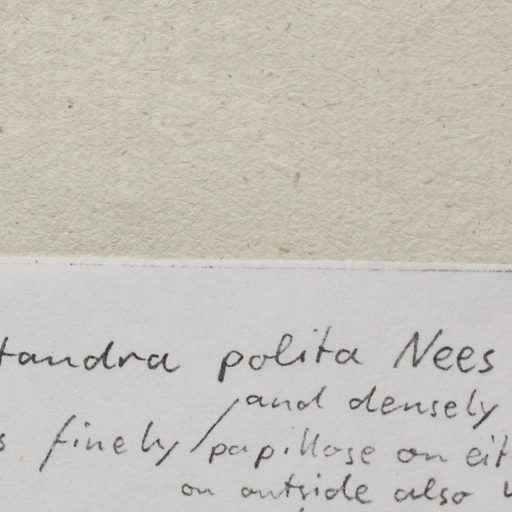 tandra polita Nees
and densely
s finely papillose on eit
on outside also